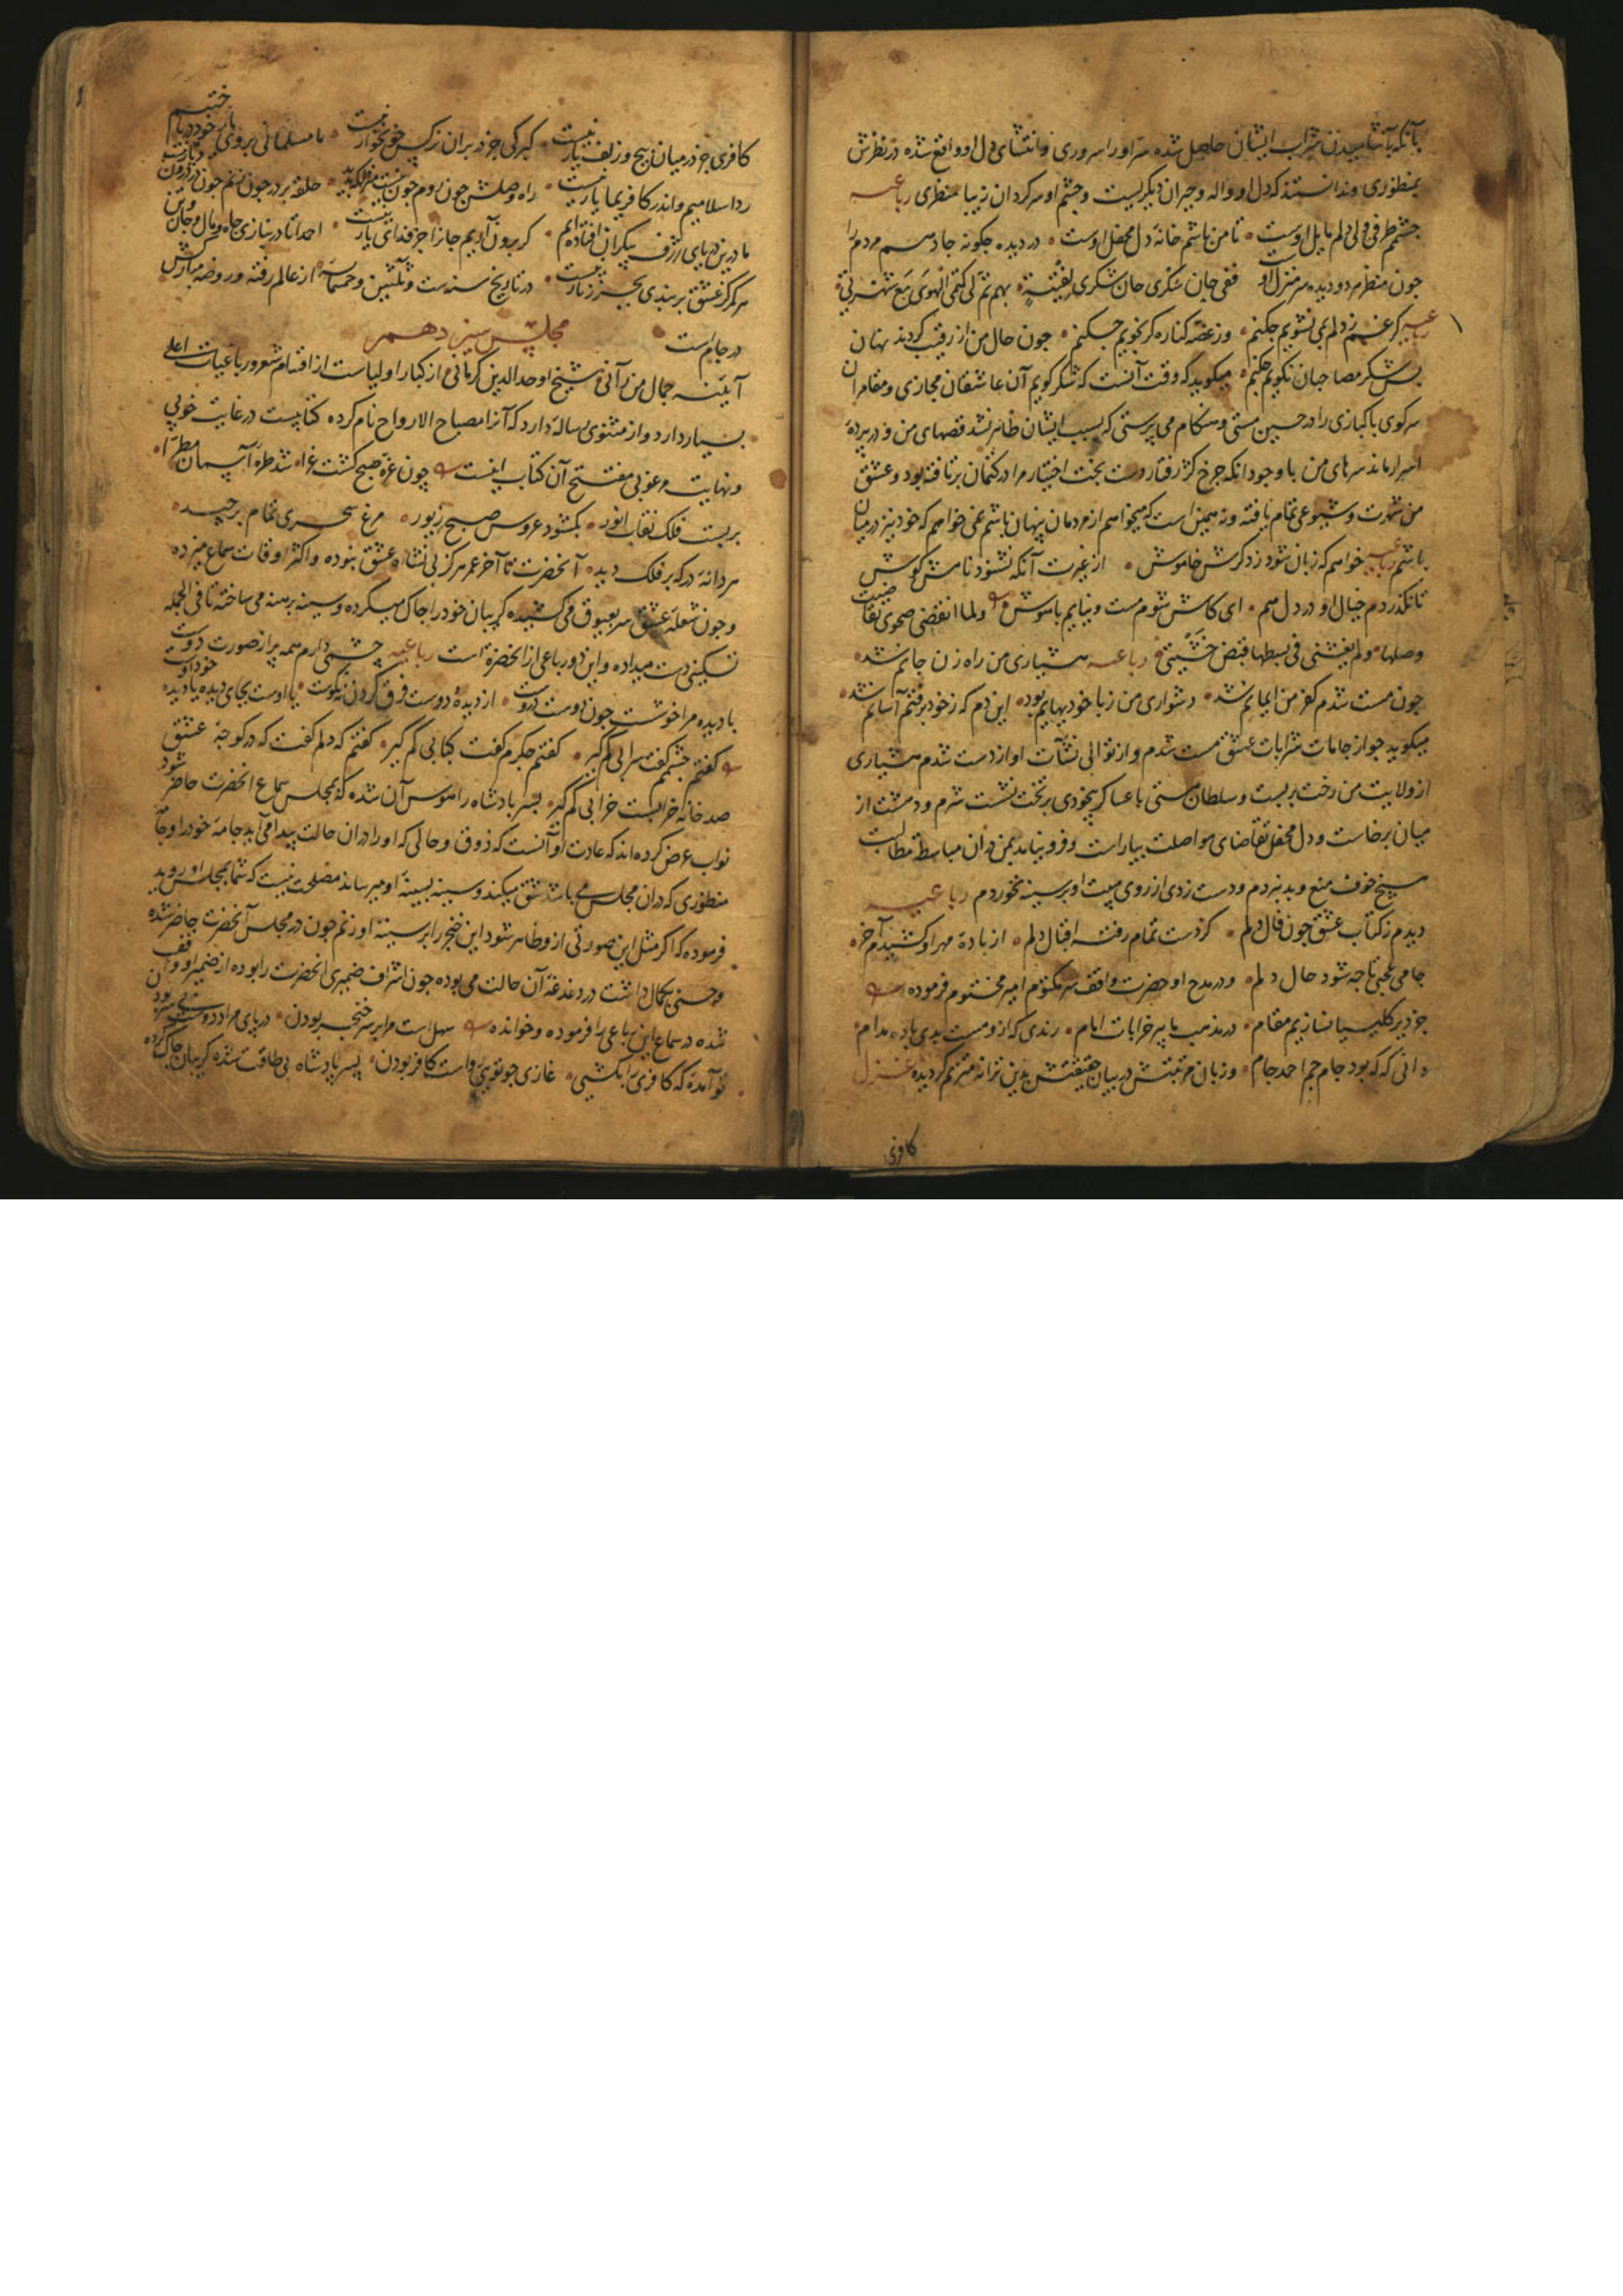 بآنکه بآشامیدن شراب ایشان حاصل شده سر او را سروری و انتشای دل او واقع شده در نظرش
بمنظوری و ندانستند که دل او واله و حیران دیگریست و چشم او سرکردان زیبا منظری رباعیه
چشمم طرفی ولی دلم مایل اوست تا من باشم خانه دل محفل اوست در دیده چکونه جا دهم مردم را
چون منظرم دو دیده سر منزل اوست ففی حان سکری حان شکری لفتیة بهم تم لی کتم الهوی مع شهرتی
رباعیه کر غم ز دلم می نشویم چکنم وز غصه کناره کر نجویم چکنم چون حال من از رقیب کردند نهان
پس شکر مصاحبان نکویم چکنم میکوید که وقت آنست که شکر کویم آن عاشقان مجازی و مقامران
سرکوی پاکبازی را در حین مستی و هنکام می پرستی که بسبب ایشان ظاهر نشد قصهای من و در پرده
اسرار ماند سرهای من با وجود انکه چرخ کژ رفتار دست بخت اختیار مرا در کتمان برتافته بود و عشق
من شهرت و شیوعی تمام یافته و نه همین است که میخواهم از مردمان پنهان باشم نمی خواهم که خود نیز در میان
باشم رباعیه خواهم که زبان شود ز ذکرش خاموش از غیرت آنکه نشنود نامش کوش
تا نکذردم خیال او در دل هم ای کاش شوم مست و نیایم با هوش و لما انقضی صحوی تقاضیت
وصلها و لم یغشنی فی بسطها قبض خشیتی رباعیه هشیاری من راه زن جانم شد
چون مست شدم کفر من ایمانم شد دشواری من ز با خودیهایم بود این دم که ز خود برفتم آسانم شد
میکوید چو از جامات شرابات عشق مست شدم و از توالی نشآت او از دست شدم هشیاری
از ولایت من رخت بربست و سلطان مستی با عساکر بیخودی بر تخت نشست شرم و دهشت از
میان برخاست و دل محفل تقاضای مواصلت بیاراست و فرو نماند بمن در آن مباسطة مطالبت
هیچ خوف منع و بد نبردم و دست زدی از روی هیبت او بر سینه نخوردم رباعیه
دیدم ز کتاب عشق چون فال دلم کردست تمام رفته اقبال دلم از باده مهر او کشیدم آخر
جامی عجبی تا چه شود حال دلم و در مدح او حضرت واقف سر مکتوم امیر مختوم فرموده
جز دیر کلیسیا نسازیم مقام در مذهب ما پیر خرابات امام رندی که ازو مست بدی باده مدام
دانی که که بود جام جم احمد جام و زبان مرتبتش در بیان حقیقتش بدین ترانه مترنم کردیده غزل
کافری
کافری جز در میان پیچ و زلف یار نیست کبرکی جز در بران نرکس خونخوار نیست ما مسلمانی بروی یار خود در باختیم
ردا سلامیم و اندر کافریما یار نیست راه وصلش چون روم چون نیست منزلکه پدید حلقه بر در چون زنم چون در درون دیار نیست
ما درین دریای ژرف بیکران افتاده ایم کر برون آریم جانرا جز فدای یار نیست احمدا تا در نبازی جاه و مال و جان و تن
هرکز از عشق بربندی بجز زنار نیست در تاریخ سنه ست و ثلثین و خمسمایه از عالم رفته و روضه مبارکش
در جام است مجلس سیزدهم
آیینه جمال من رآنی شیخ اوحدالدین کرمانی از کبار اولیاست از اقسام شعور رباعیات اعلی
بسیار دارد و از مثنوی رساله دارد که آنرا مصباح الارواح نام کرده کتابیست در غایت خوبی
و نهایت مرغوبی مفتتح آن کتاب اینست چون غره صبح کشت غرا شد طره آسمان مطرا
بربست فلک نقاب انور بکشود عروس صبح زیور مرغ سحری تمام برچید
هر دانه در که بر فلک دید آنحضرت تا آخر عمر هرکز بی نشاه عشق نبوده و اکثر اوقات سماع میزده
و چون شعله عشق سر بعیوق می کشیده کریبان خود را چاک میکرده و سینه برهنه می ساخته تا فی الجمله
تسکینی دست میداده و این دو رباعی از آنحضرة است رباعیه چشمی دارم همه پر از صورت دوست
با دیده مرا خوشست چون دوست دروست از دیده و دوست فرق کردن نه نکوست یا اوست بجای دیده یا دیده خود اوست
کفتم چشمم کفت سرابی کم کیر کفتم جکرم کفت کبابی کم کیر کفتم که دلم کفت که در کوچه عشق
صد خانه خرابست خرابی کم کیر پسر پادشاه را هوس آن شده که بمجلس سماع آنحضرت حاضر شود
نواب عرض کرده اند که عادت او آنست که ذوق و حالی که او را در ان حالت پیدا می آید جامه خود را و جامه
منظوری که در ان مجلس می باشد شق میکند و سینه بسینه او میرساند مصلحت نیست که شما بمجلس او روید
فرموده که اکر مثل این صورتی ازو ظاهر شود این خنجر را بر سینه او زنم چون در مجلس آنحضرت حاضر شده
و حسنی بکمال داشت در دغدغه آن حالت می بوده چون اشراف ضمیری آنحضرت را بوده از ضمیر او واقف
شده در سماع این رباعی را فرموده و خوانده سهل است مرا بر سر خنجر بودن در پای مراد دوست بی سر بودن
تو آمده که کافری را بکشی غازی چو تویی رواست کافر بودن پسر پادشاه بی طاقت شده کریبان چاک کرده